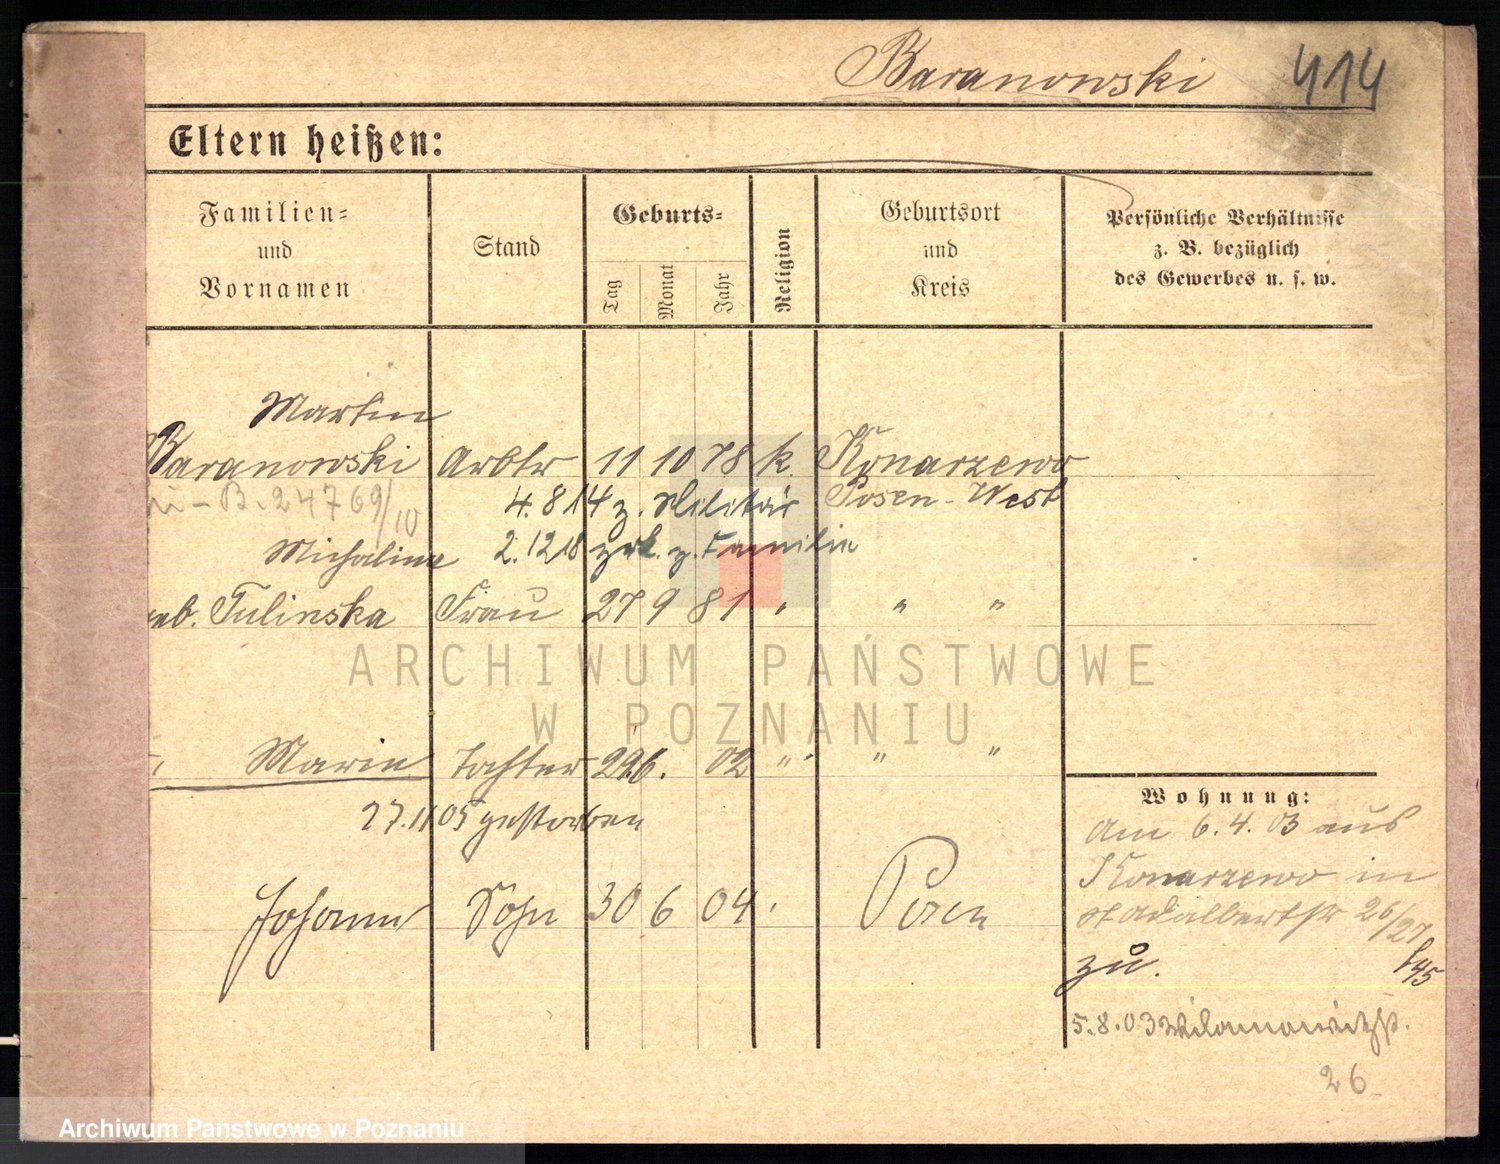 Baranowski 414
Eltern heißen:
Familien-
und
Vornamen
Stand
Geburts-
Tag Monat Jahr
Religion
Geburtsort
und
Kreis
Persönliche Verhältnisse
z. B. bezüglich
des Gewerbes u. s. w.
Martin
Baranowski Arbtr 11 10 78 k. Konarzewo
4. 8 14 z. Militär Posen-West
B. 24769/10
Michalina 2. 12 18 zrk. z. Familie
geb. Tulinska Frau 27 9 81 " " "
ARCHIWUM PAŃSTWOWE
W POZNANIU
Marie Tochter 29 6. 02 " " "
27.11 05 gestorben
Johann Sohn 30 6 04 Posen
Wohnung:
Am 6. 4. 03 aus
Konarzewo in
26/27
zu.
5. 8. 03
26
Archiwum Państwowe w Poznaniu